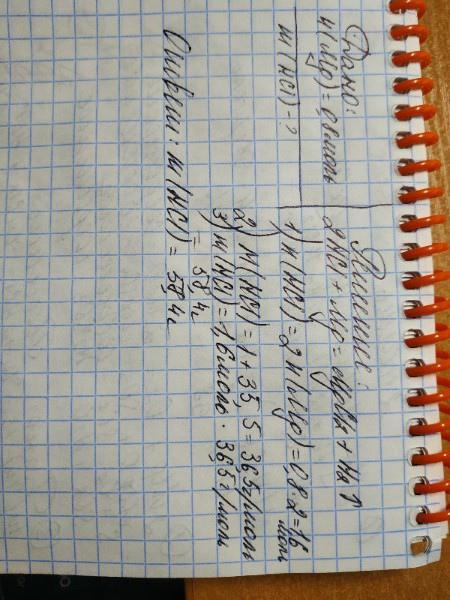 Дано:
n(Mg) = 0,8 моль
m(HCl) - ?
Решение:
2HCl + Mg = MgCl2 + H2↑
1) n(HCl) = 2n(Mg) = 0,8 · 2 = 1,6 моль
2) M(HCl) = 1 + 35,5 = 36,5 г/моль
3) m(HCl) = 1,6 моль · 36,5 г/моль
= 58,4 г
Ответ: m(HCl) = 58,4 г